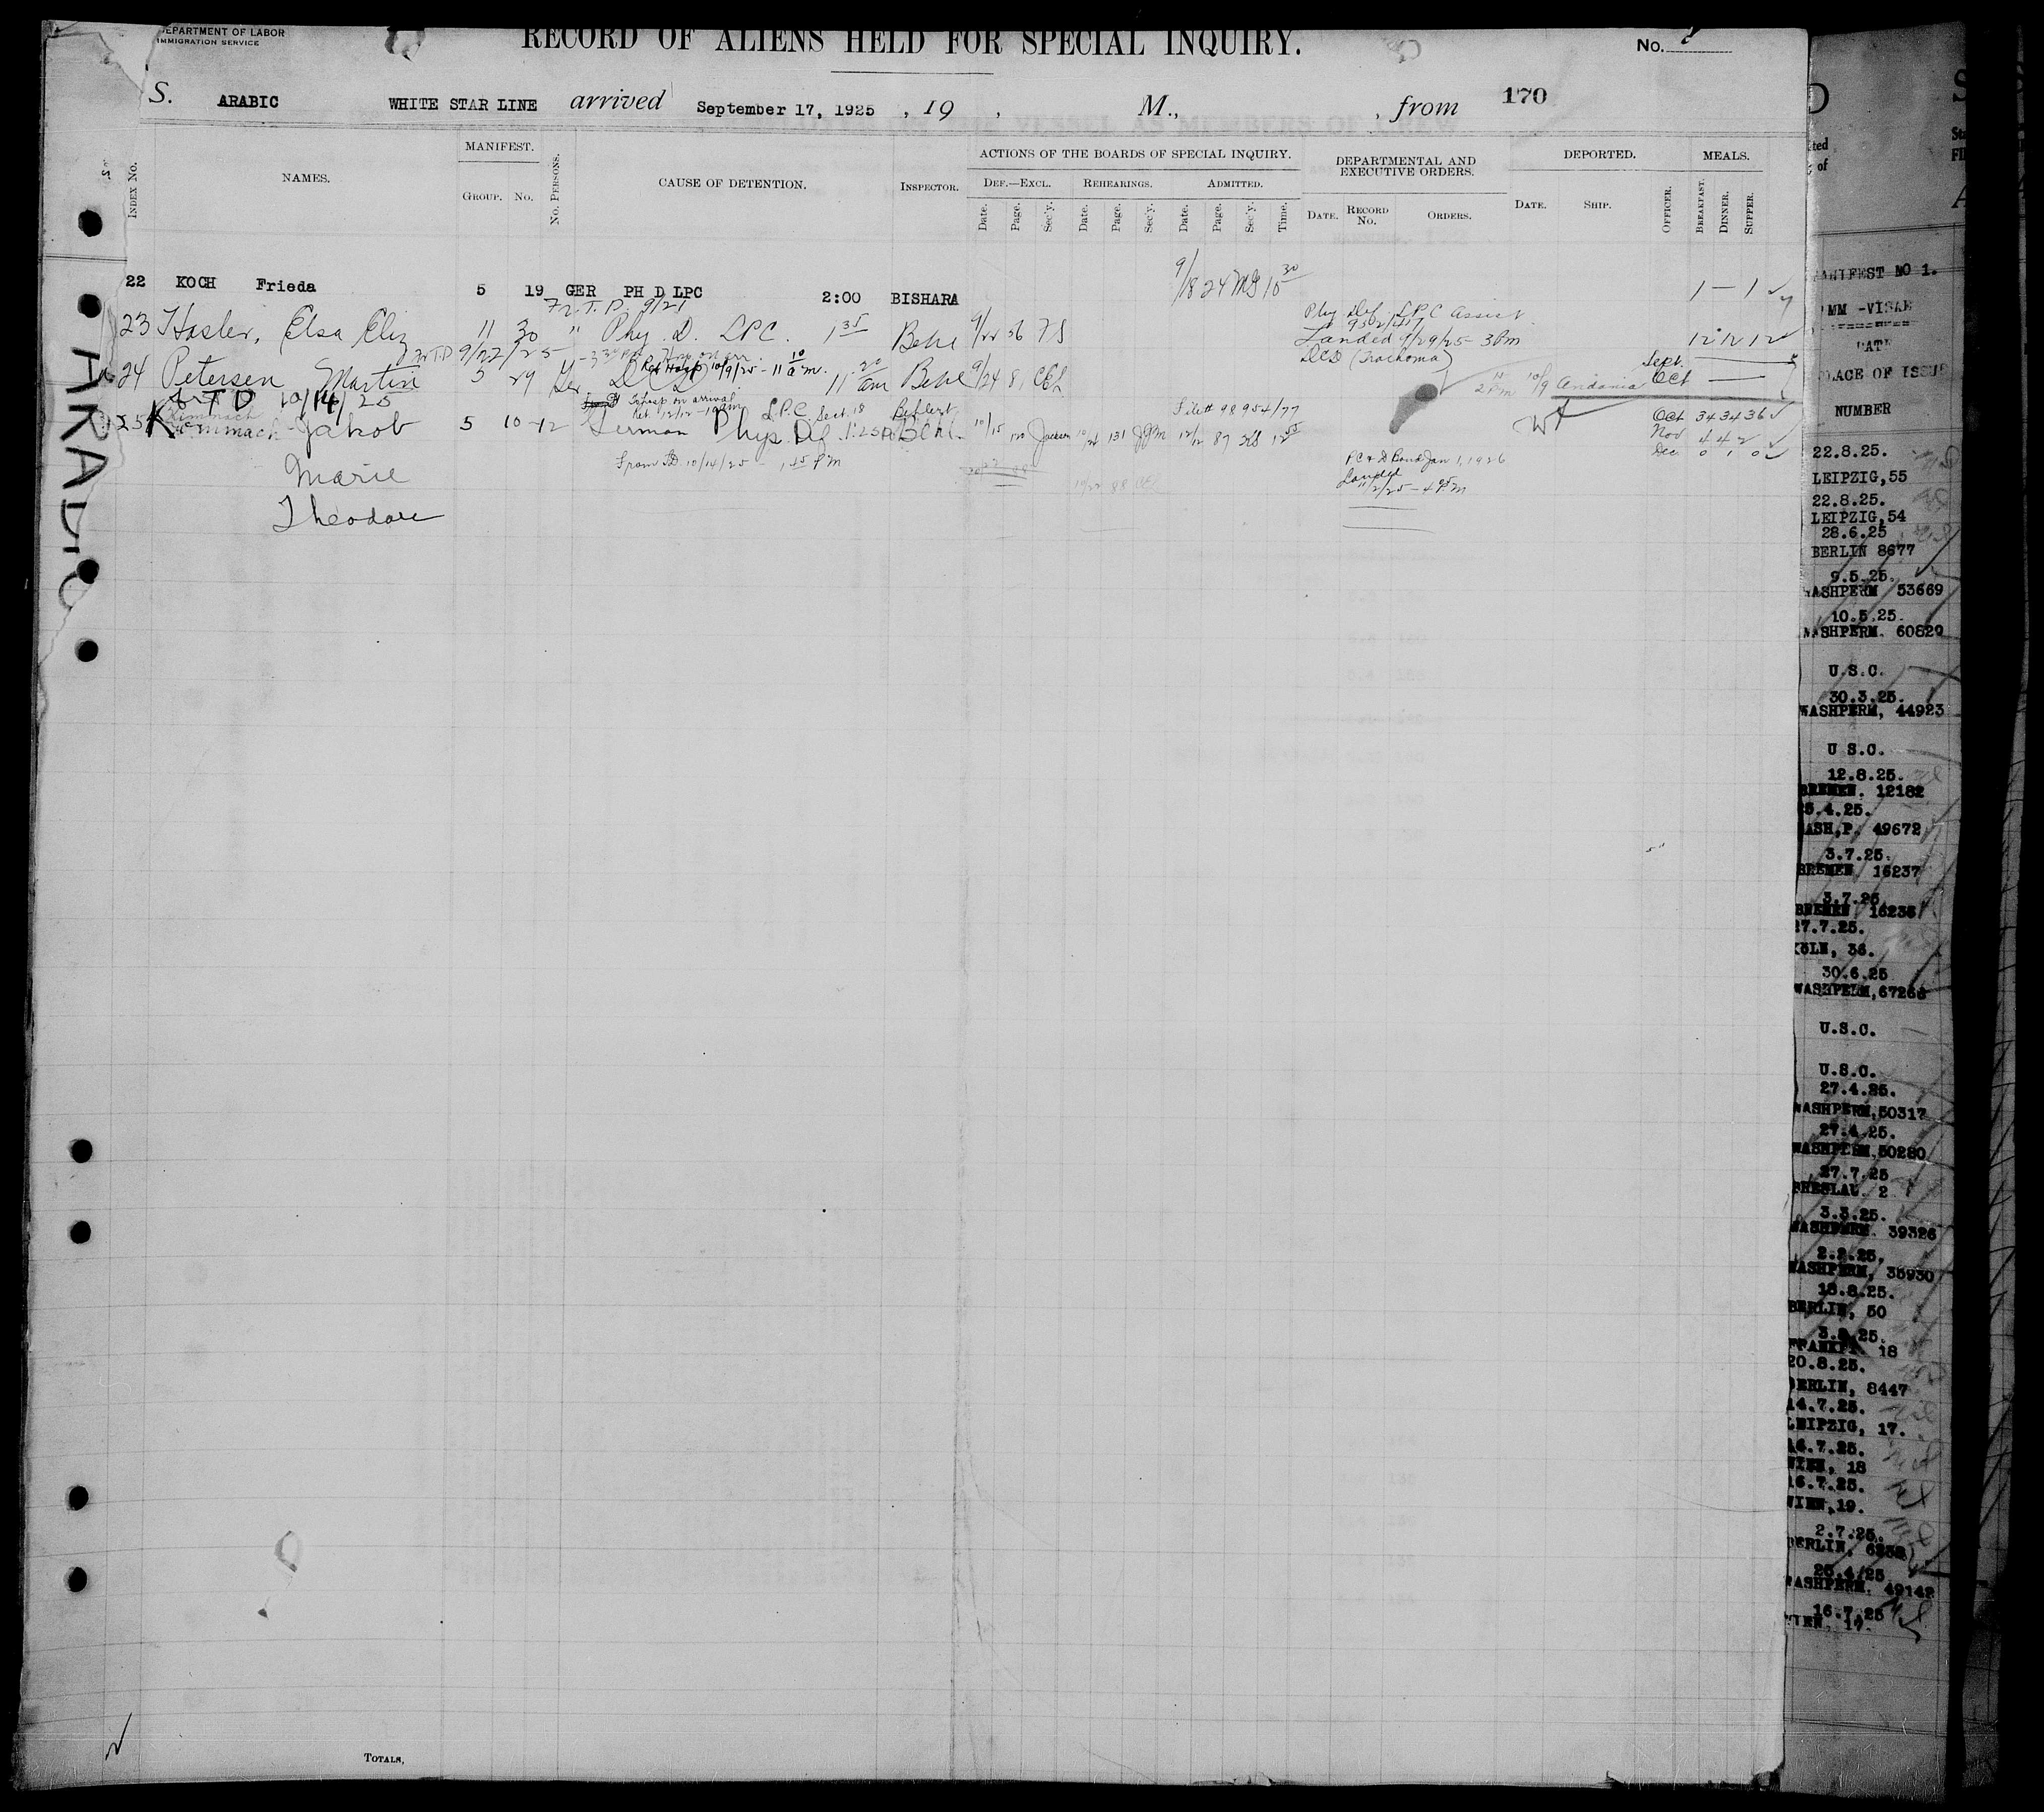 DEPARTMENT OF LABOR
IMMIGRATION SERVICE
RECORD OF ALIENS HELD FOR SPECIAL INQUIRY.
No.
S. ARABIC WHITE STAR LINE arrived September 17, 1925 , 19 , M., , from 170
INDEX No.
NAMES.
MANIFEST.
GROUP. No.
No. PERSONS.
CAUSE OF DETENTION.
INSPECTOR.
ACTIONS OF THE BOARDS OF SPECIAL INQUIRY.
DEF.—EXCL. REHEARINGS. ADMITTED.
Date. Page. Sec'y. Date. Page. Sec'y. Date. Page. Sec'y. Time.
DEPARTMENTAL AND
EXECUTIVE ORDERS.
DATE. RECORD No. ORDERS.
DEPORTED.
DATE. SHIP.
OFFICER.
MEALS.
BREAKFAST. DINNER. SUPPER.
22 KOCH Frieda 5 19 GER PH D LPC 2:00 BISHARA 9/18 24 MG 10 30 1 — 1
Fr. T. D. 9/21
23 Hasler, Elsa Eliz 11 30 " Phy. D. LPC. 1 35 Behl 9/22 56 FS 12 12 12
Phy Def. LPC assist
Landed 9/29/25 - 3 Pm
Fr TD 9/27/25 - 3 30 Pm Hosp on arr.
Ret Hosp 10/9/25 - 11 10 a m.
24 Petersen Martin 5 29 Ger. DCD 11 20 am Behl 9/24 8 DCD (Trachoma) 2 Pm 10/9 Andania Sept.
Oct —
fr T D 10/14/25
Hosp on arrival
Ret. 12/12 - 10 am
LPC Sept. 18
File # 98954/77
25 Kimmach Jakob 5 10-12 German Phys Def 1:25 P Behl 10/15 120 Jackson 10/24 131 JJM 12/12 87 12 55 Oct 34 34 36
Nov 4 4 2
Dec 0 1 0
Marie
From TD 10/14/25 - 1 45 P M
PC & D Bond Jan 1, 1926
Landed
11/2/25 - 4 05 P M
Theodore
TOTALS,
ARABIC
MANIFEST NO 1.
IMM -VISAE
DATE
PLACE OF ISSUE
NUMBER
22.8.25.
LEIPZIG,55
22.8.25.
LEIPZIG,54
28.6.25
BERLIN 8677
9.5.25.
WASHPERM 53669
10.5.25.
WASHPERM. 60829
U.S.C.
30.3.25.
WASHPERM, 44923
U S.C.
12.8.25.
BREMEN. 12182
25.4.25.
WASH,P. 49672
3.7.25.
BREMEN 16237
3.7.25
BREMEN 16236
27.7.25.
KOLN, 36.
30.6.25
WASHPERM,67268
U.S.C.
U.S.C.
27.4.25.
WASHPERM,50317
27.4.25.
WASHPERM,50280
27.7.25
BRESLAU. 2
3.3.25.
WASHPERM. 39326
2.2.25.
WASHPERM, 35930
18.8.25.
BERLIN, 50
3.8.25.
FRANKFT 18
20.8.25.
BERLIN, 8447
14.7.25.
LEIPZIG, 17.
16.7.25.
WIEN, 18
16.7.25.
WIEN,19.
2.7.25.
BERLIN,
25.4/25
WASHPERM. 49142
16.7.25
WIEN, 17.